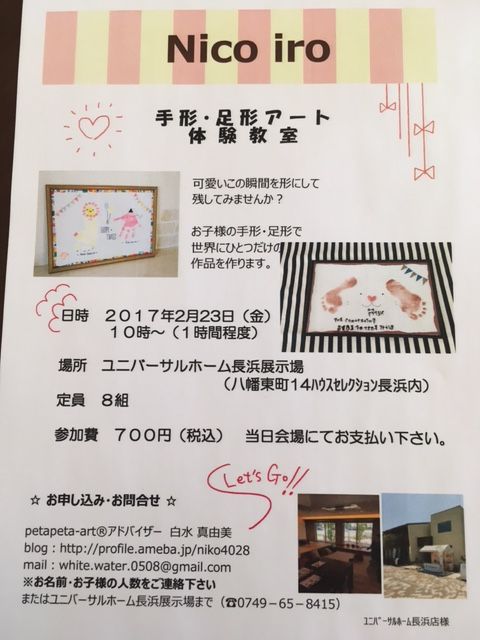 Nico iro
手形・足形アート
体験教室
可愛いこの瞬間を形にして
残してみませんか？
お子様の手形・足形で
世界にひとつだけの
作品を作ります。
日時　２０１７年２月２３日（金）
１０時～（１時間程度）
場所　ユニバーサルホーム長浜展示場
（八幡東町１４ﾊｳｽセレクション長浜内）
定員　８組
参加費　７００円（税込）　当日会場にてお支払い下さい。
Let's Go!!
☆ お申し込み・お問合せ ☆
petapeta-art®アドバイザー　白水 真由美
blog : http://profile.ameba.jp/niko4028
mail : white.water.0508@gmail.com
※お名前・お子様の人数をご連絡下さい
またはユニバーサルホーム長浜展示場まで（☎0749－65－8415）
ﾕﾆﾊﾞｰｻﾙﾎｰﾑ長浜店様